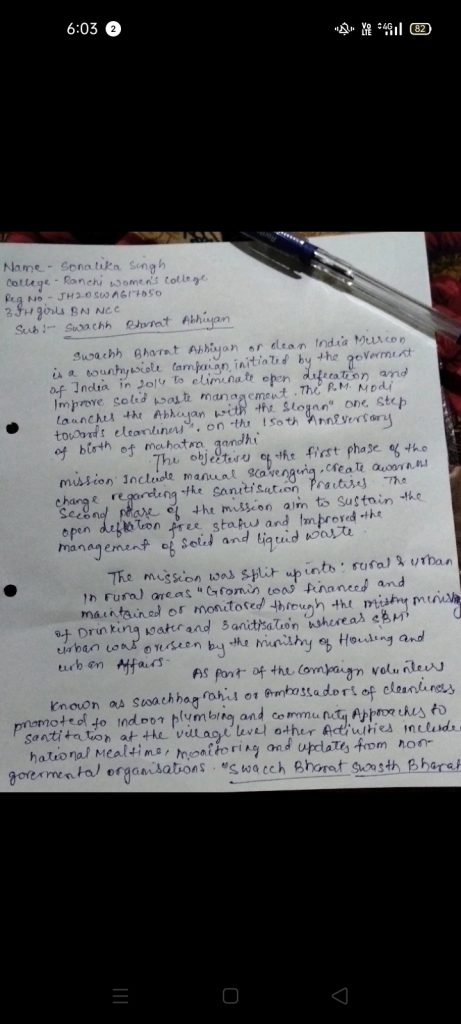 6:03 2
4G 82
Name - Sonalika Singh
College - Ranchi Women's College
Reg No - JH20SWA617050
3JH girls BN NCC
Sub :- Swachh Bharat Abhiyan
Swachh Bharat Abhiyan or clean India Mission
is a countrywide Campaign, initiated by the goverment
of India in 2014 to eliminate open defecation and
Improve Solid waste management. The P.M. Modi
Launches the Abhiyan with the Slogan" one step
towards cleanliness", on the 150th Anniversary
of birth of mahatma gandhi
The objectives of the first phase of the
mission Include manual Scavenging, create
change regarding the Sanitisation Practises The
Second phase of the mission aim to Sustain the
open free status and Improved the
management of Solid and liquid waste.
The mission was Split up into : rural & urban
In rural areas " was financed and
maintained or monitored through the ministry
of Drinking water and Sanitisation whereas SBM
urban was overseen by the Ministry of Housing and
urban Affairs.
As part of the Campaign volunteers
Known as Swachhagrahis or Ambassadors of cleanliness
promoted to Indoor plumbing and community Approaches to
Santitation at the village level other Activities Include
national monitoring and updates from non-
govermental organisations. "Swacch Bharat Swasth Bharat